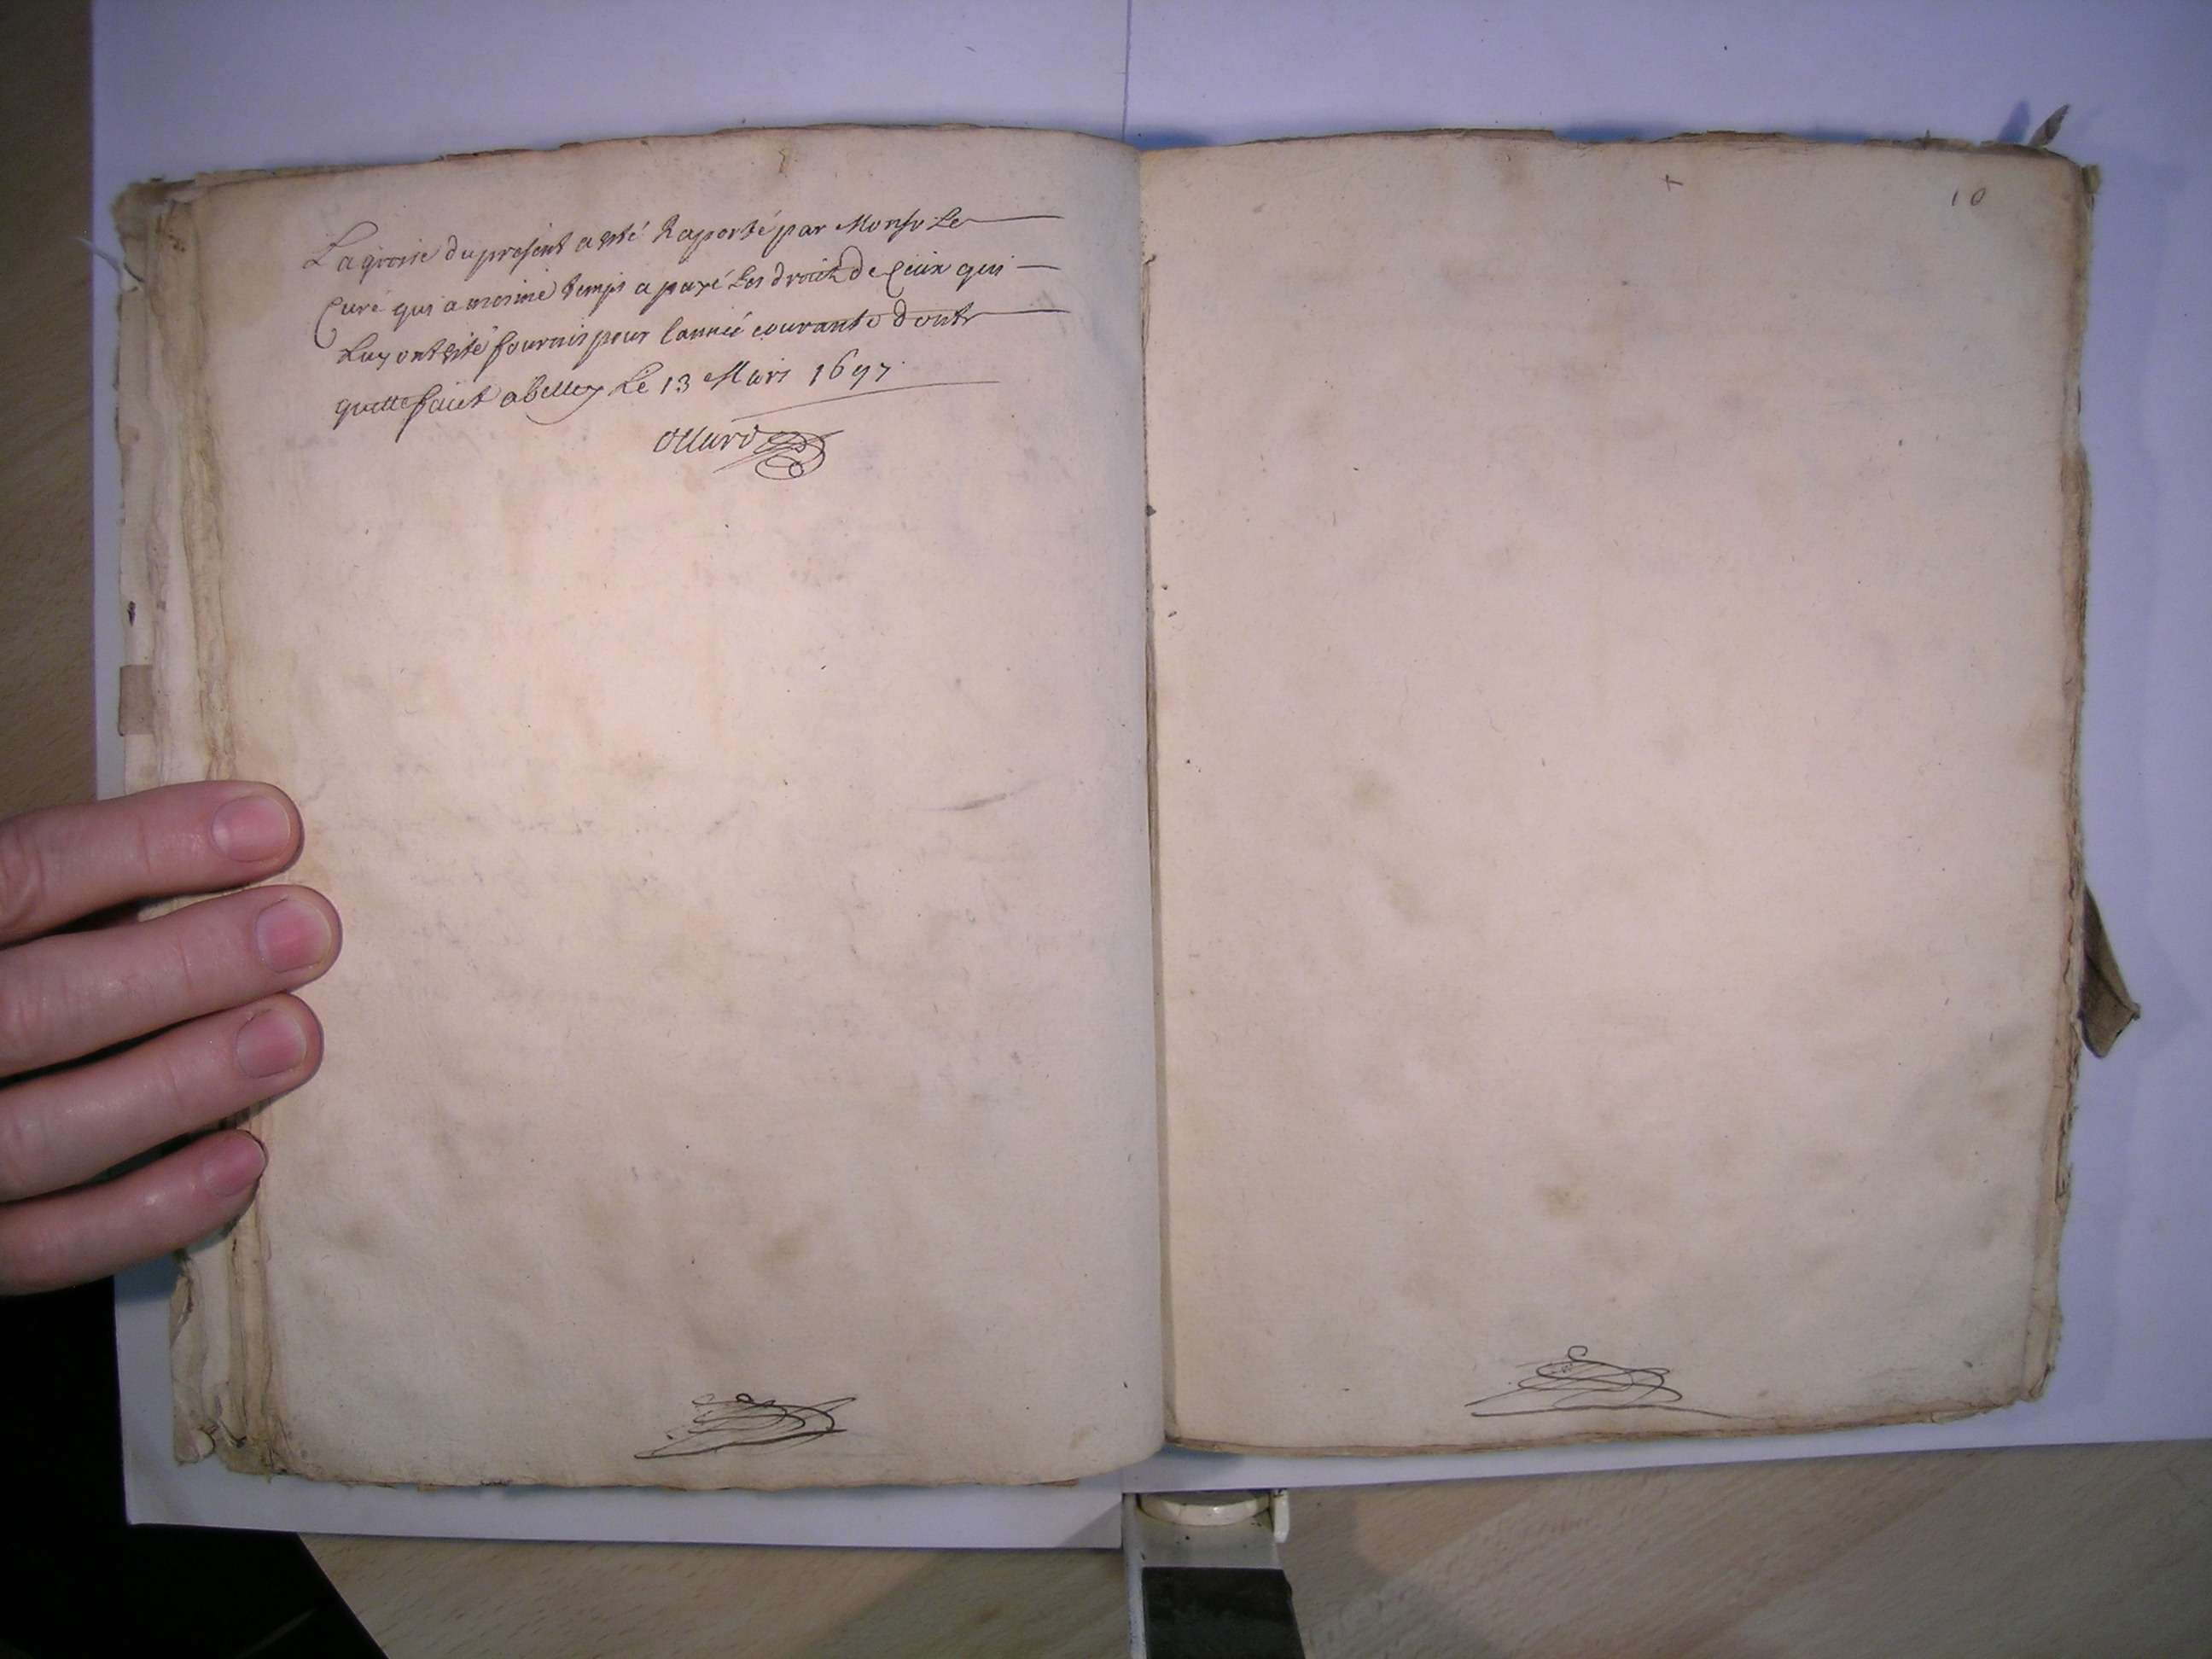 La grosse du present a esté Raporté par Monsr Le
Curé qui a mesme temps a payé Les droits de Ceux qui
Luy ont esté fournis pour l'année courante dont
quitte faict a Belley Le 13 Mars 1697
Ollard
+
10